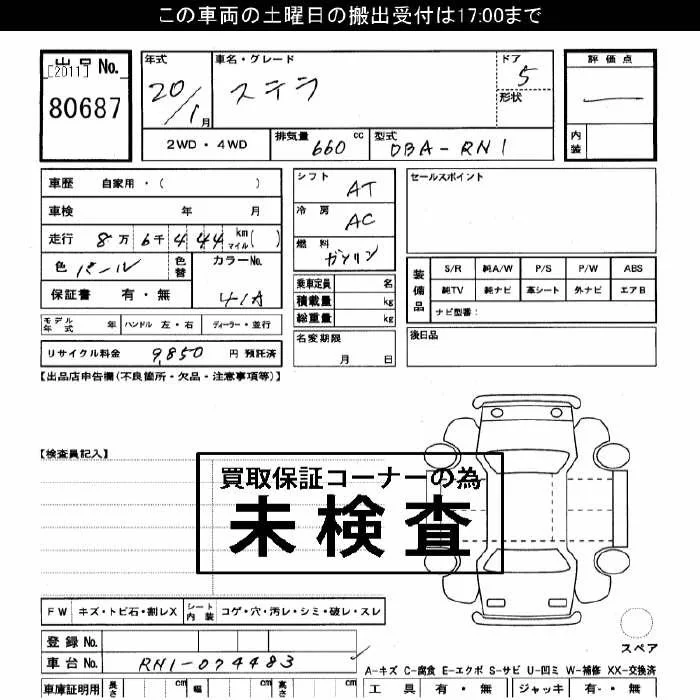 この車両の土曜日の搬出受付は17:00まで
出品 No.
[2011]
80687
年式 20/1月
車名・グレード ステラ
ドア 5
形状
評価点
内装
2WD・4WD
排気量 660 cc
型式 DBA-RN1
車歴 自家用・( )
車検 年 月
走行 8万6千444 km マイル ( )
色 パール
色替
カラーNo. 41A
保証書 有・無
シフト AT
冷房 AC
燃料 ガソリン
乗車定員 名
積載量 kg
総重量 kg
セールスポイント
装備品
S/R 純A/W P/S P/W ABS
純TV 純ナビ 革シート 外ナビ エアB
ナビ型番:
モデル年式 年 ハンドル 左・右 ディーラー・並行
名変期限 月 日
後日品
リサイクル料金 9,850 円 預託済
【出品店申告欄(不良箇所・欠品・注意事項等)】
【検査員記入】
買取保証コーナーの為
未検査
FW キズ・トビ石・割レX シート内装 コゲ・穴・汚レ・シミ・破レ・スレ
登録No.
車台No. RN1-074483
スペア
A-キズ C-腐食 E-エクボ S-サビ U-凹ミ W-補修 XX-交換済
車庫証明用 長さ cm 幅 cm 高さ cm
工具 有・無 ジャッキ 有・無